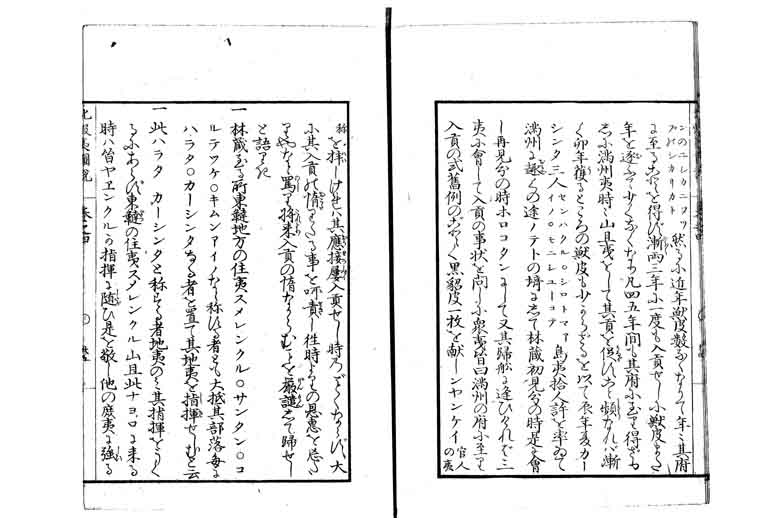 然るに近年獣皮数なくなりて年々其府
に至ることを得ず漸両三年に一度も入貢せしに獣皮また
年を逐ふて少くなくなり凡四五年間も其府に至り得ざる
ゆゑに満州夷時々山旦夷をして其貢を促がして頻なれバ漸
く卯年獲るところの獣皮も少からざるを以て辰年夏カー
シンタ三人 センハクル○シロトマア イノ○モニレユーコテ 島夷拾人許を率ゐて
満州に趣くの途ノテトの埼にして林蔵初見分の時是に會
し再見分の時ホロコタンにして又其歸舩に逢ひければ三
夷に會して入貢の事状を問しに衆夷皆曰満州の府に至り
入貢の式舊例のごとく黒貂皮一枚を献しシヤンケイ 官人の夷
称 を拝しけれバ其應接屡入貢せし時のごとくならず大
に其入貢の惰たる事を呵責し往時よりの恩惠を忘れ
りやなど罵り将来入貢の惰なからむことを厳譴して歸せし
と語りき
一 林蔵至る所東韃地方の住夷スメレンクル○サンタン○コ
ルテツケ○キムンアイノなど称ひし者とも大抵其部落毎に
ハラタ○カーシンタなる者を置て其地夷を指揮せしむと云
一 此ハラタ カーシンタと称する者地夷のミ其指揮をうくる
るにあらず東韃の住夷スメレンクル山旦此ナヨロに来る
時ハ皆ヤエンクルの指揮に随ひ是を敬し他の庶夷に強る
北蝦夷圖説 巻之四